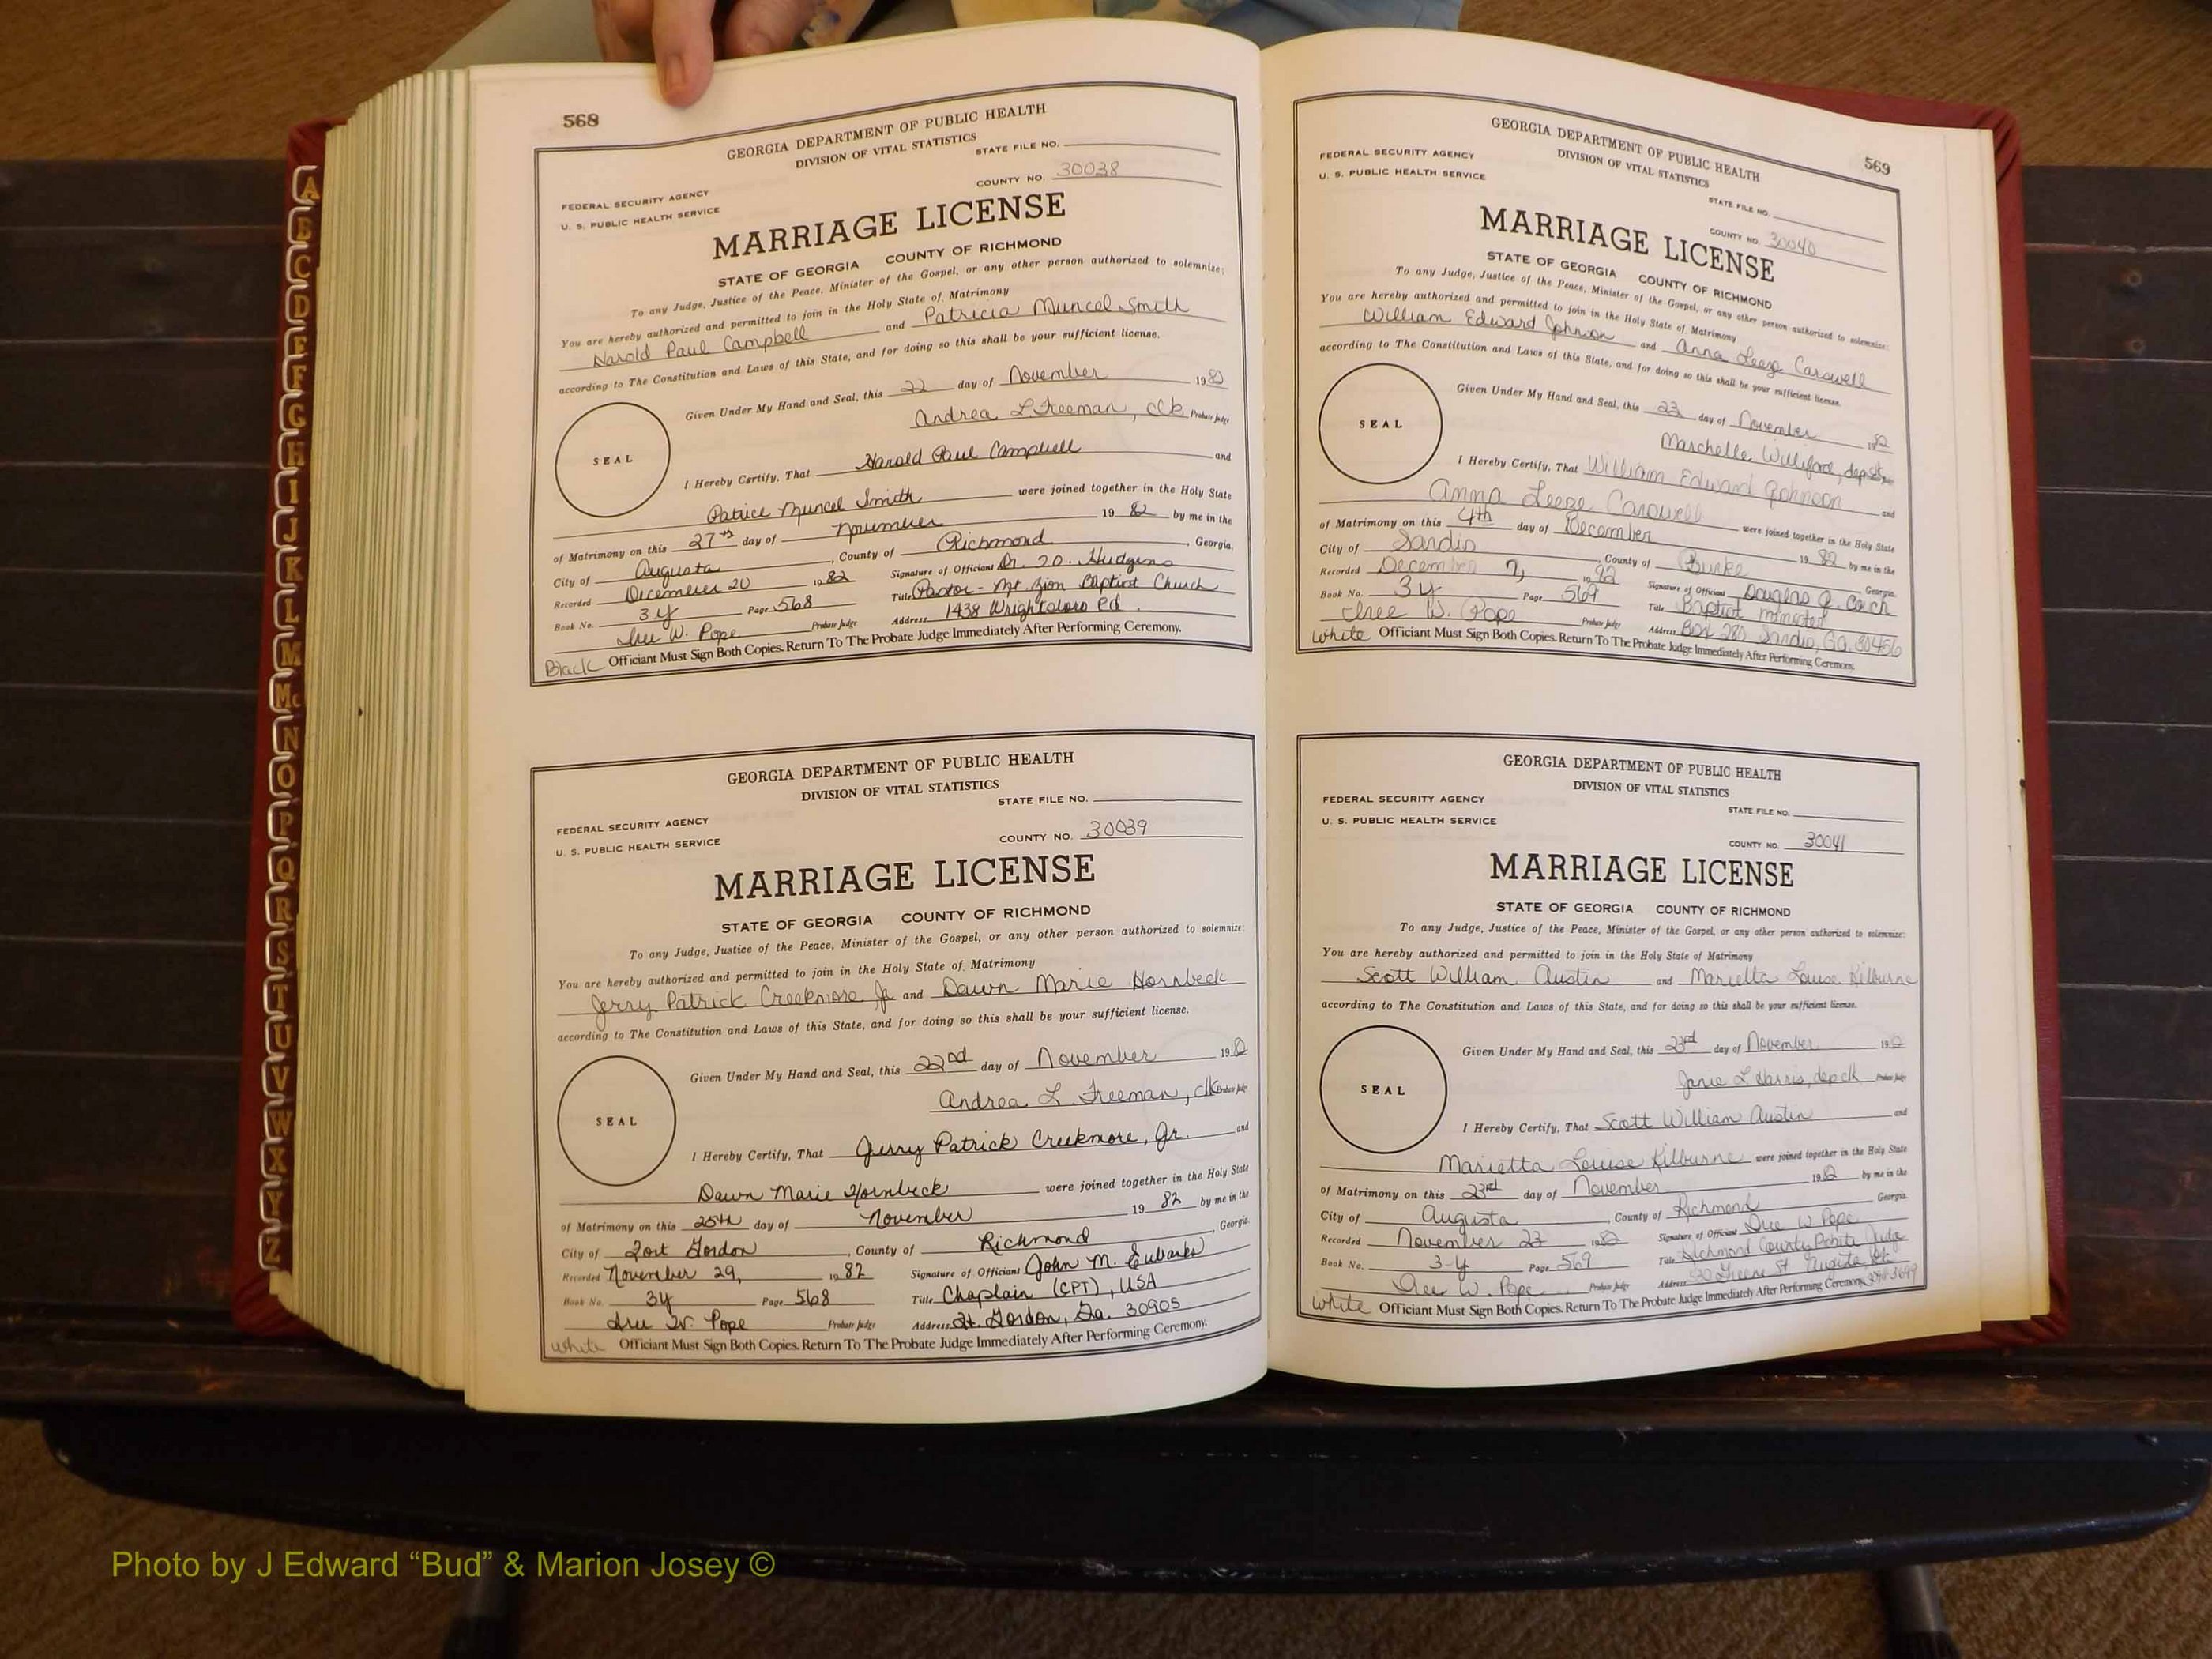 A
B
C
D
E
F
G
H
I
J
K
L
M
Mc
N
O
P
Q
R
S
T
U
V
W
X
Y
Z
568
GEORGIA DEPARTMENT OF PUBLIC HEALTH
DIVISION OF VITAL STATISTICS
STATE FILE NO.
FEDERAL SECURITY AGENCY
U. S. PUBLIC HEALTH SERVICE
COUNTY NO. 30038
MARRIAGE LICENSE
STATE OF GEORGIA COUNTY OF RICHMOND
To any Judge, Justice of the Peace, Minister of the Gospel, or any other person authorized to solemnize:
You are hereby authorized and permitted to join in the Holy State of Matrimony
Harold Paul Campbell and Patricia Muncel Smith
according to The Constitution and Laws of this State, and for doing so this shall be your sufficient license.
Given Under My Hand and Seal, this 22 day of November 1982
SEAL
Andrea L Freeman, clk Probate Judge
I Hereby Certify, That Harold Paul Campbell and
Patrice Muncel Smith were joined together in the Holy State
of Matrimony on this 27th day of November 19 82 by me in the
City of Augusta, County of Richmond, Georgia.
Recorded December 20 1982 Signature of Officiant Hudgins
Book No. 3Y Page 568 Title Pastor - Mt. Zion Baptist Church
W. Pope Probate Judge Address 1438 Wrightsboro Rd.
Black Officiant Must Sign Both Copies. Return To The Probate Judge Immediately After Performing Ceremony.
GEORGIA DEPARTMENT OF PUBLIC HEALTH
DIVISION OF VITAL STATISTICS
STATE FILE NO.
FEDERAL SECURITY AGENCY
U. S. PUBLIC HEALTH SERVICE
COUNTY NO. 30039
MARRIAGE LICENSE
STATE OF GEORGIA COUNTY OF RICHMOND
To any Judge, Justice of the Peace, Minister of the Gospel, or any other person authorized to solemnize:
You are hereby authorized and permitted to join in the Holy State of Matrimony
Jerry Patrick Creekmore Jr and Dawn Marie Hornbeck
according to The Constitution and Laws of this State, and for doing so this shall be your sufficient license.
Given Under My Hand and Seal, this 22nd day of November 1982
SEAL
Andrea L Freeman, clk Probate Judge
I Hereby Certify, That Jerry Patrick Creekmore, Jr. and
Dawn Marie Hornbeck were joined together in the Holy State
of Matrimony on this 25th day of November 19 82 by me in the
City of Fort Gordon, County of Richmond, Georgia.
Recorded November 29, 1982 Signature of Officiant John M. Eubanks
Book No. 3Y Page 568 Title Chaplain (CPT), USA
W. Pope Probate Judge Address Ft. Gordon, Ga. 30905
White Officiant Must Sign Both Copies. Return To The Probate Judge Immediately After Performing Ceremony.
569
GEORGIA DEPARTMENT OF PUBLIC HEALTH
DIVISION OF VITAL STATISTICS
FEDERAL SECURITY AGENCY
U. S. PUBLIC HEALTH SERVICE
STATE FILE NO.
COUNTY NO. 30040
MARRIAGE LICENSE
STATE OF GEORGIA COUNTY OF RICHMOND
To any Judge, Justice of the Peace, Minister of the Gospel, or any other person authorized to solemnize:
You are hereby authorized and permitted to join in the Holy State of Matrimony
William Edward Johnson and Anna Leeze Carswell
according to The Constitution and Laws of this State, and for doing so this shall be your sufficient license.
Given Under My Hand and Seal, this 23 day of November 1982
SEAL
Marchelle Williford,
I Hereby Certify, That William Edward Johnson and
Anna Leeze Carswell were joined together in the Holy State
of Matrimony on this 4th day of December 19 82 by me in the
City of Sardis, County of Burke Georgia.
Recorded December 7, 1982 Signature of Officiant Douglas
Book No. 3Y Page 569 Title Baptist minister
W. Pope Probate Judge Address Box 280 Sardis, GA. 30456
White Officiant Must Sign Both Copies. Return To The Probate Judge Immediately After Performing Ceremony.
GEORGIA DEPARTMENT OF PUBLIC HEALTH
DIVISION OF VITAL STATISTICS
FEDERAL SECURITY AGENCY
U. S. PUBLIC HEALTH SERVICE
STATE FILE NO.
COUNTY NO. 30041
MARRIAGE LICENSE
STATE OF GEORGIA COUNTY OF RICHMOND
To any Judge, Justice of the Peace, Minister of the Gospel, or any other person authorized to solemnize:
You are hereby authorized and permitted to join in the Holy State of Matrimony
Scott William Austin and Marietta Louise Kilburne
according to The Constitution and Laws of this State, and for doing so this shall be your sufficient license.
Given Under My Hand and Seal, this 23rd day of November 1982
SEAL
Janie L Harris, dep clk Probate Judge
I Hereby Certify, That Scott William Austin and
Marietta Louise Kilburne were joined together in the Holy State
of Matrimony on this 23rd day of November 1982 by me in the
City of Augusta, County of Richmond Georgia.
Recorded November 23 1982 Signature of Officiant W. Pope
Book No. 3-Y Page 569 Title Richmond County Probate Judge
W. Pope Probate Judge Address Greene St Augusta,
White Officiant Must Sign Both Copies. Return To The Probate Judge Immediately After Performing Ceremony.
Photo by J Edward “Bud” & Marion Josey ©